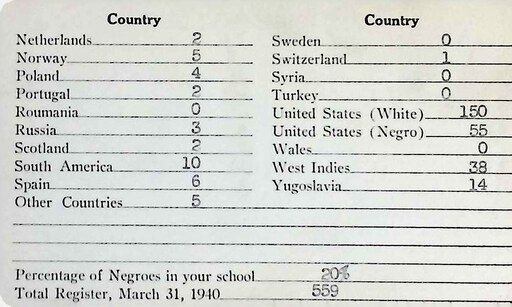 Country
Netherlands 2
Norway 5
Poland 4
Portugal 2
Roumania 0
Russia 3
Scotland 2
South America 10
Spain 6
Other Countries 5
Country
Sweden 0
Switzerland 1
Syria 0
Turkey 0
United States (White) 150
United States (Negro) 55
Wales 0
West Indies 38
Yugoslavia 14
Percentage of Negroes in your school 20%
Total Register, March 31, 1940 559